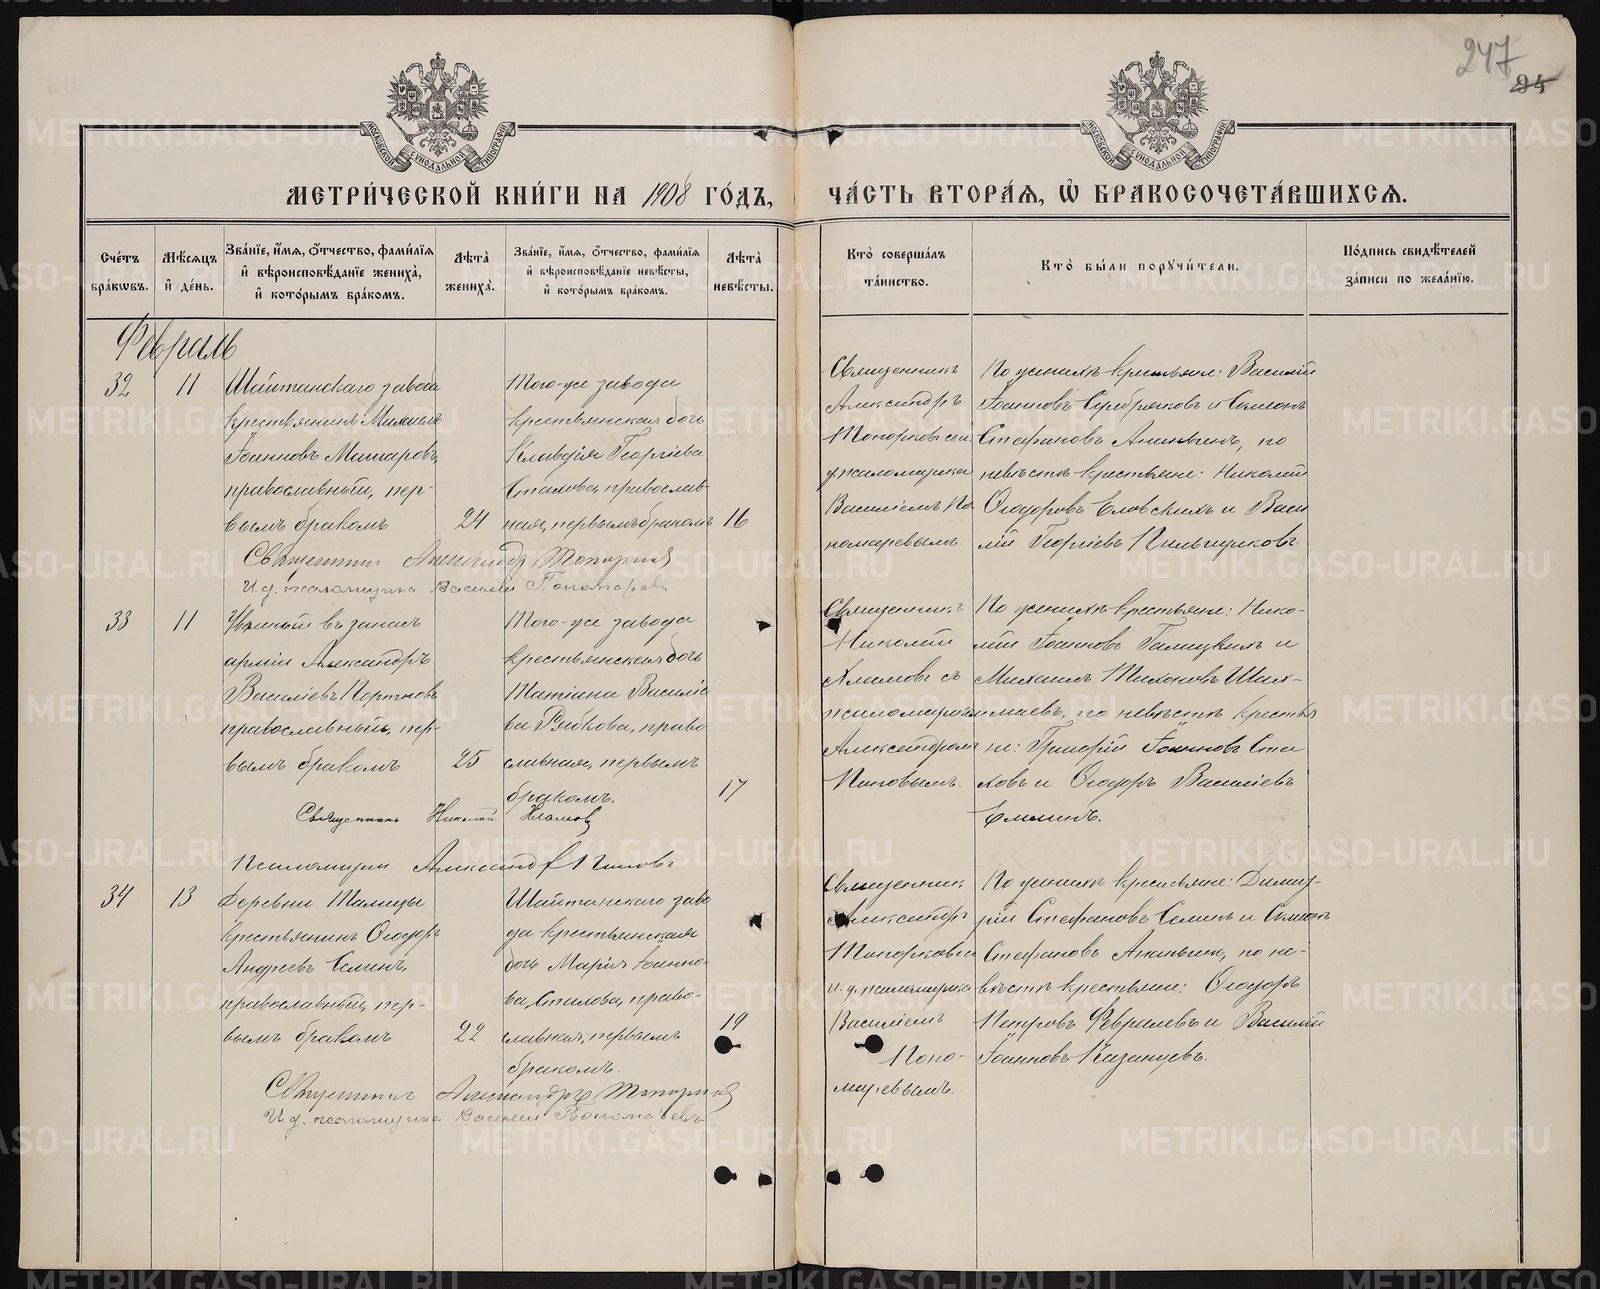 247
94
МОСКОВСКОЙ СѴНОДАЛЬНОЙ ТИПОГРАФІИ
МОСКОВСКОЙ СѴНОДАЛЬНОЙ ТИПОГРАФІИ
МЕТРИ́ЧЕСКОЙ КНИ́ГИ НА 1908 ГО́ДЪ,
ЧА́СТЬ ВТОРА́Ѧ, Ѽ БРАКОСОЧЕТА́ВШИХСѦ.
Сче́тъ бра́кѡвъ.
Мѣ́сѧцъ и҆ де́нь.
Зва́нїе, и҆́мѧ, ѻ҆́тчество, фами́лїѧ и҆ вѣроисповѣ́данїе жениха̀, и҆ кото́рымъ бра́комъ.
Лѣ́та жениха̀.
Зва́нїе, и҆́мѧ, ѻ҆́тчество, фами́лїѧ и҆ вѣроисповѣ́данїе невѣ́сты, и҆ кото́рымъ бра́комъ.
Лѣ́та невѣ́сты.
Кто̀ соверша́лъ та́инство.
Кто̀ бы́ли поручи́тели.
По́дпись свидѣ́телей за́писи по жела́нїю.
Февраль
32
11
Шайтанскаго завода
крестьянинъ Михаилъ
Іоанновъ Макаровъ,
православный, пер-
вымъ бракомъ
24
Того-же завода
крестьянская дочь
Клавдія Георгіева
Стахова, православ-
ная, первымъ бракомъ
16
Священникъ
Александръ
Топорковъ съ и.
д. псаломщика
Василіемъ По
номаревымъ.
По женихѣ крестьяне: Василій
Іоанновъ Серебряковъ и Симеонъ
Стефановъ Ананьинъ, по
невѣстѣ крестьяне: Николай
Ѳеодоровъ Еловскихъ и Васи
лій Георгіевъ Пильщиковъ.
Священникъ Александръ Топорковъ
И. д. псаломщика Василій Пономаревъ
33
11
Уволенный въ запасъ
арміи Александръ
Василіевъ Портновъ
православный, пер-
вымъ бракомъ
25
Того-же завода
крестьянская дочь
Татіана Василіе
ва Рыбкова, право
славная, первымъ
бракомъ.
17
Священникъ
Николай
Хламовъ съ
псаломщикомъ
Александромъ
Поповымъ.
По женихѣ крестьяне: Нико-
лай Іоанновъ Галицкихъ и
Михаилъ Тихоновъ Шал-
маевъ, по невѣстѣ крестья
не: Григорій Іоанновъ Ста
ховъ и Ѳеодоръ Василіевъ
Емлинъ.
Священникъ Николай Хламовъ
Псаломщикъ Александръ Поповъ
34
13
Деревни Талицы
крестьянинъ Ѳеодоръ
Андреевъ Селинъ,
православный, пер-
вымъ бракомъ
22
Шайтанскаго заво
да крестьянская
дочь Марія Іоанно-
ва Стахова, право-
славная, первымъ
бракомъ.
19
Священникъ
Александръ
Топорковъ съ
и. д. псаломщика
Василіемъ
Поно-
маревымъ.
По женихѣ крестьяне: Димит-
рій Стефановъ Селинъ и Симеонъ
Стефановъ Ананьинъ, по не-
вѣстѣ крестьяне: Ѳеодоръ
Петровъ Февралевъ и Василій
Іоанновъ Казанцевъ.
Священникъ Александръ Топорковъ
И. д. псаломщика Василій Пономаревъ
METRIKI.GASO-URAL.RU